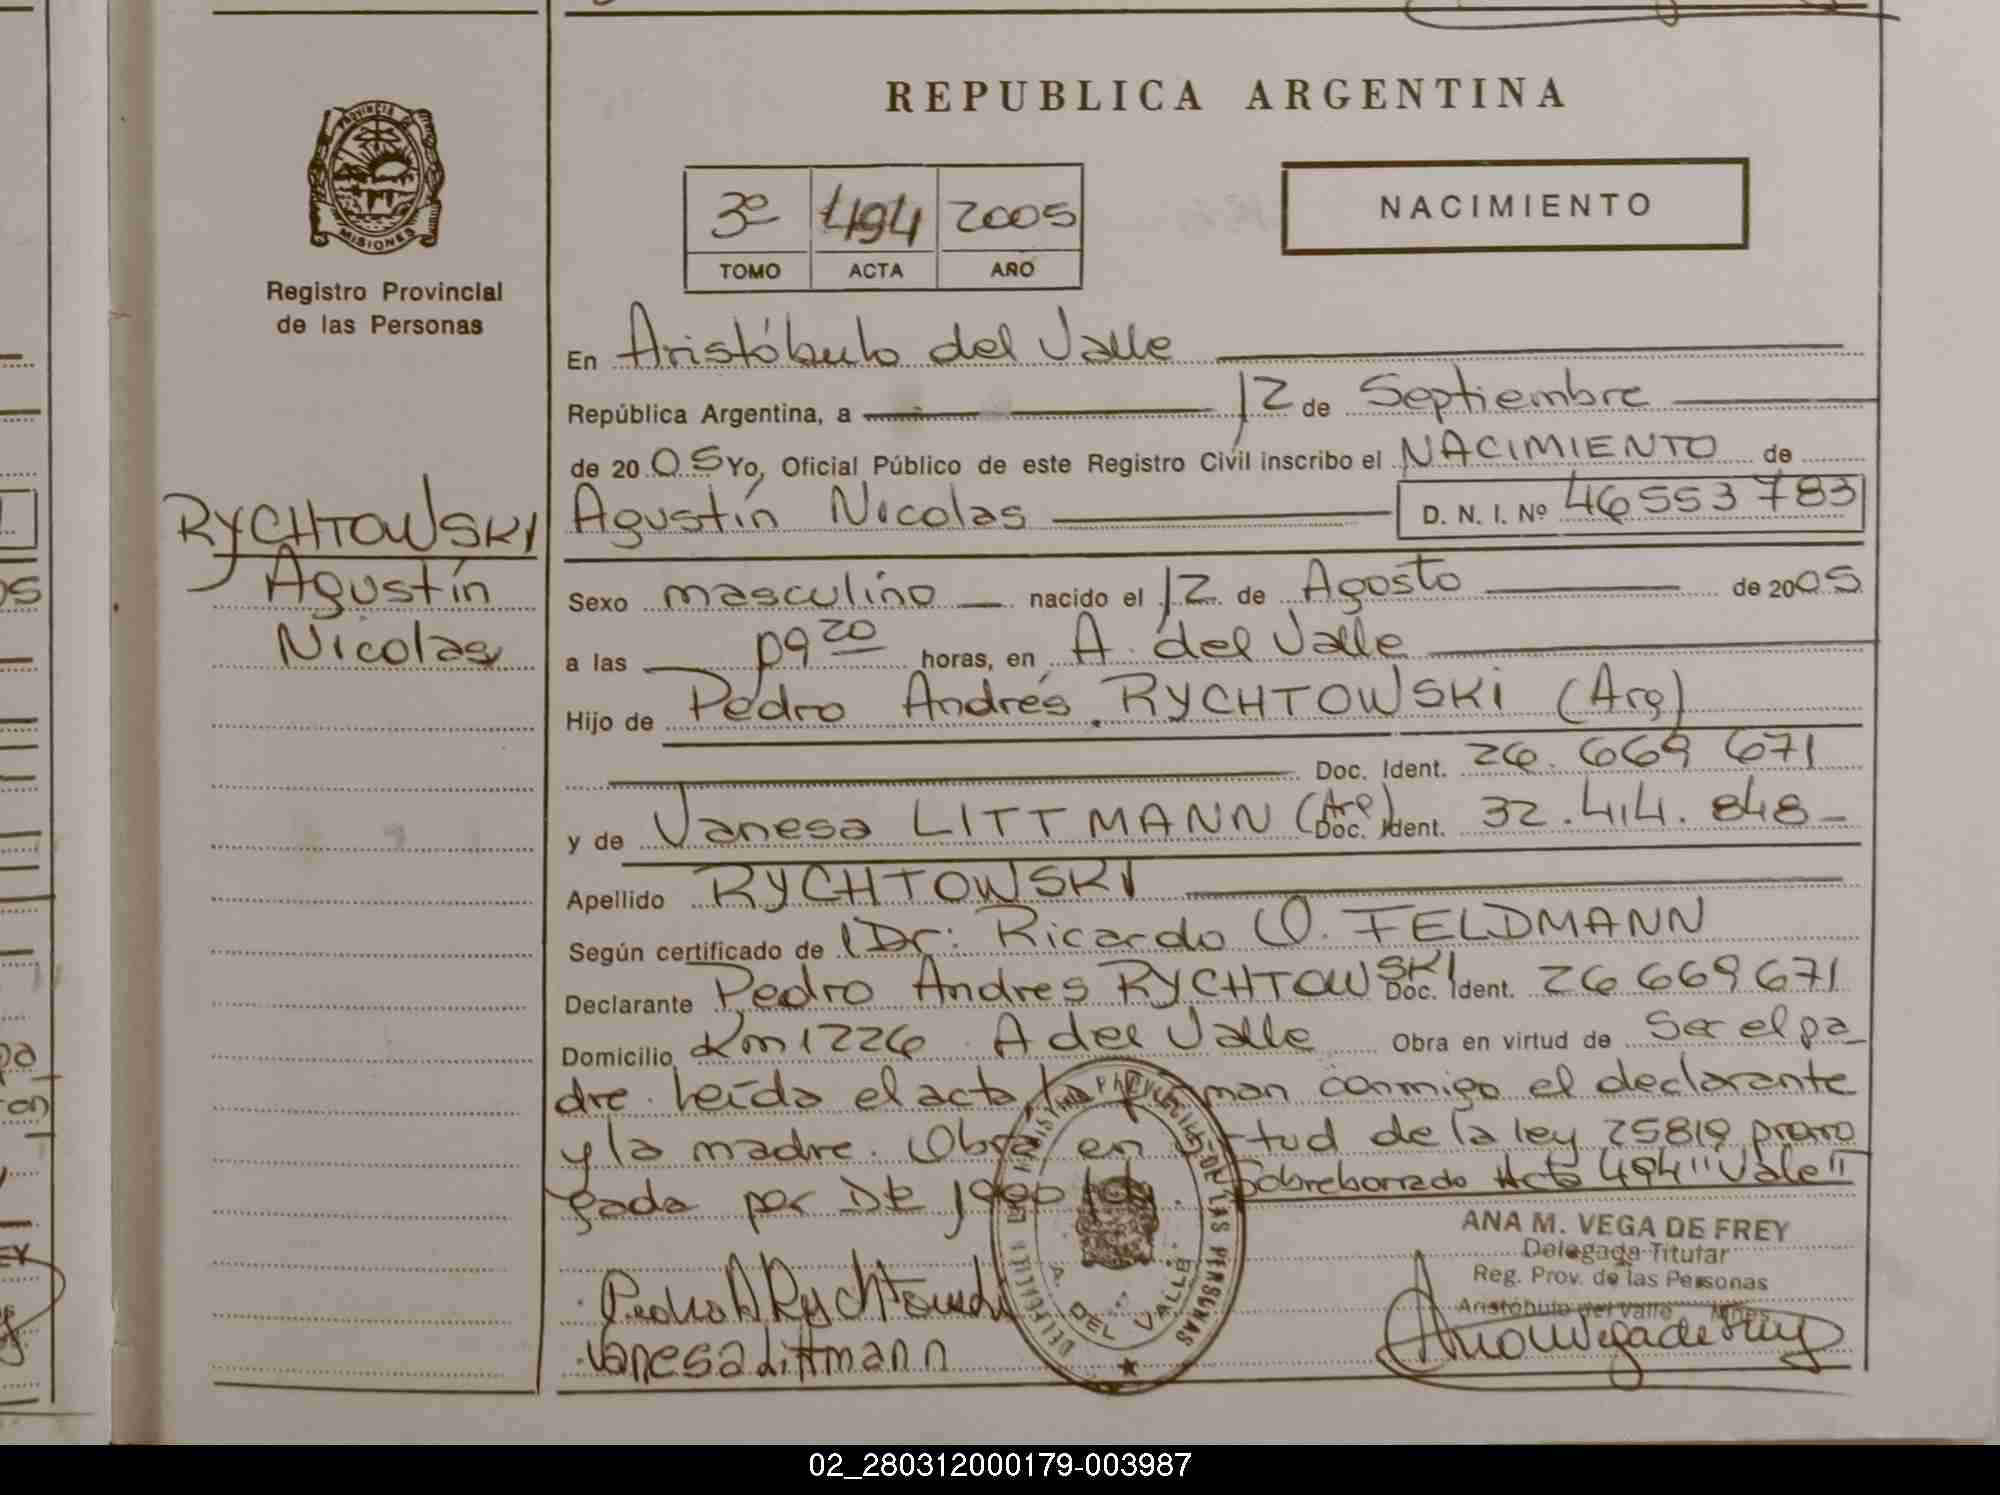 REPUBLICA ARGENTINA
PROVINCIA DE
MISIONES
Registro Provincial
de las Personas
3º 494 2005
TOMO ACTA AÑO
NACIMIENTO
En Aristóbulo del Valle
República Argentina, a 12 de Septiembre
de 2005 Yo, Oficial Público de este Registro Civil inscribo el NACIMIENTO de
RYCHTOWSKI
Agustín
Nicolas
Agustín Nicolas D. N. I. Nº 46553783
Sexo masculino nacido el 12 de Agosto de 2005
a las 09 20 horas, en A. del Valle
Hijo de Pedro Andrés RYCHTOWSKI (Arg)
Doc. Ident. 26.669 671
y de Vanesa LITTMANN (Arg) Doc. Ident. 32.414.848
Apellido RYCHTOWSKI
Según certificado de Dr: Ricardo O. FELDMANN
Declarante Pedro Andres RYCHTOWSKI Doc. Ident. 26 669 671
Domicilio Km 1226 A del Valle Obra en virtud de Ser el pa
dre. Leída el acta, man conmigo el declarante
y la madre. Obra en tud de la ley 25819 prorro
gada por
Sobreborrado Acta 494 "Vale"
ANA M. VEGA DE FREY
Delegada Titular
Reg. Prov. de las Personas
Aristóbulo del Valle Mnes
Pedro A Rychtowski
Vanesa Littmann
PROVINCIAL DE LAS PERSONAS
A. DEL VALLE
02_280312000179-003987